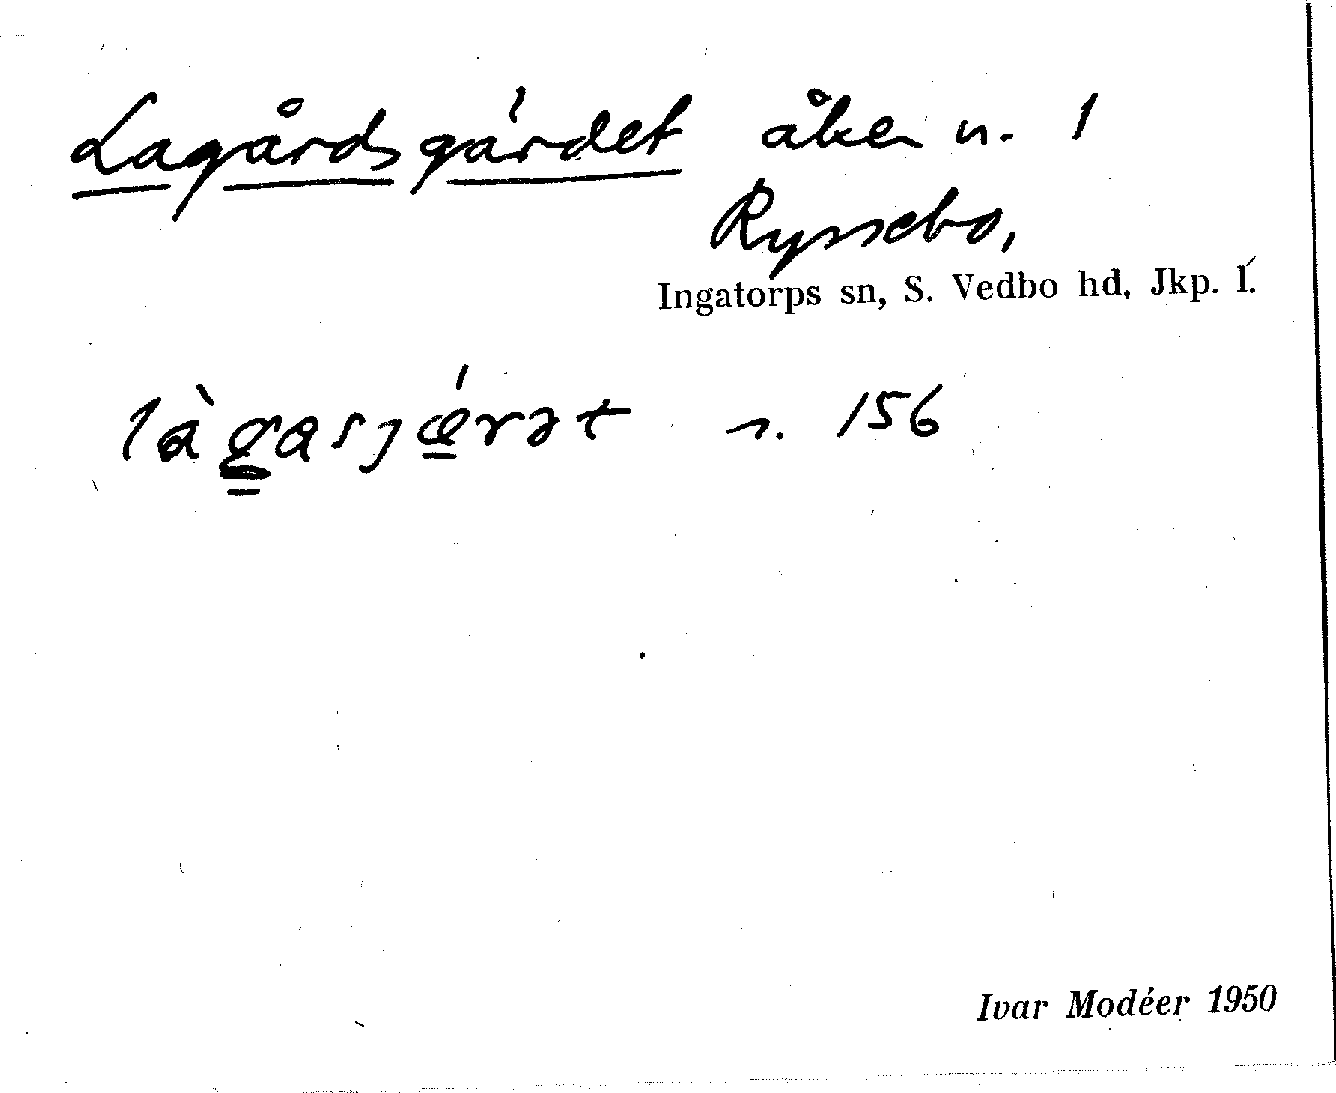 Lagårdsgärdet åker n. 1
Ryssebo,
Ingatorps sn, S. Vedbo hd, Jkp. l.
làgasjǽrət n. 156
Ivar Modéer 1950